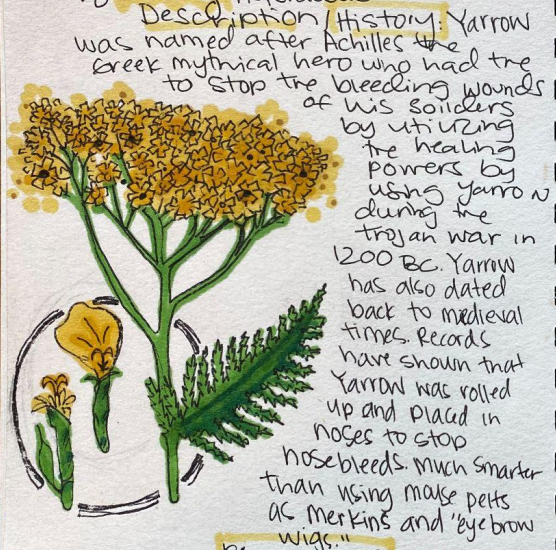 Description/History: Yarrow
was named after Achilles the
Greek mythical hero who had the
to stop the bleeding wounds
of his soilders
by utilizing
the healing
powers by
using Yarrow
during the
trojan war in
1200 BC. Yarrow
has also dated
back to medieval
times. Records
have shown that
Yarrow was rolled
up and placed in
noses to stop
nosebleeds. Much smarter
than using mouse pelts
as merkins and "eyebrow
wigs."